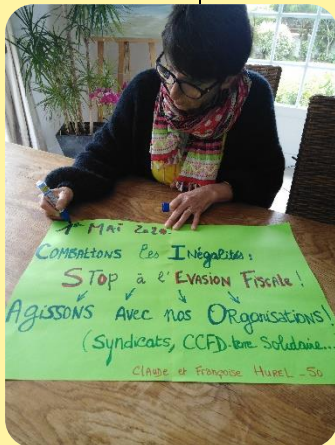 1er MAI 2020.
COMBATTONS les INégalités :
STOP à l'EVASION FISCALE !
AGISSONS AVEC nos ORGANISATIONS !
(Syndicats, CCFD-terre Solidaire...
CLAUDE et Françoise HUREL - 50